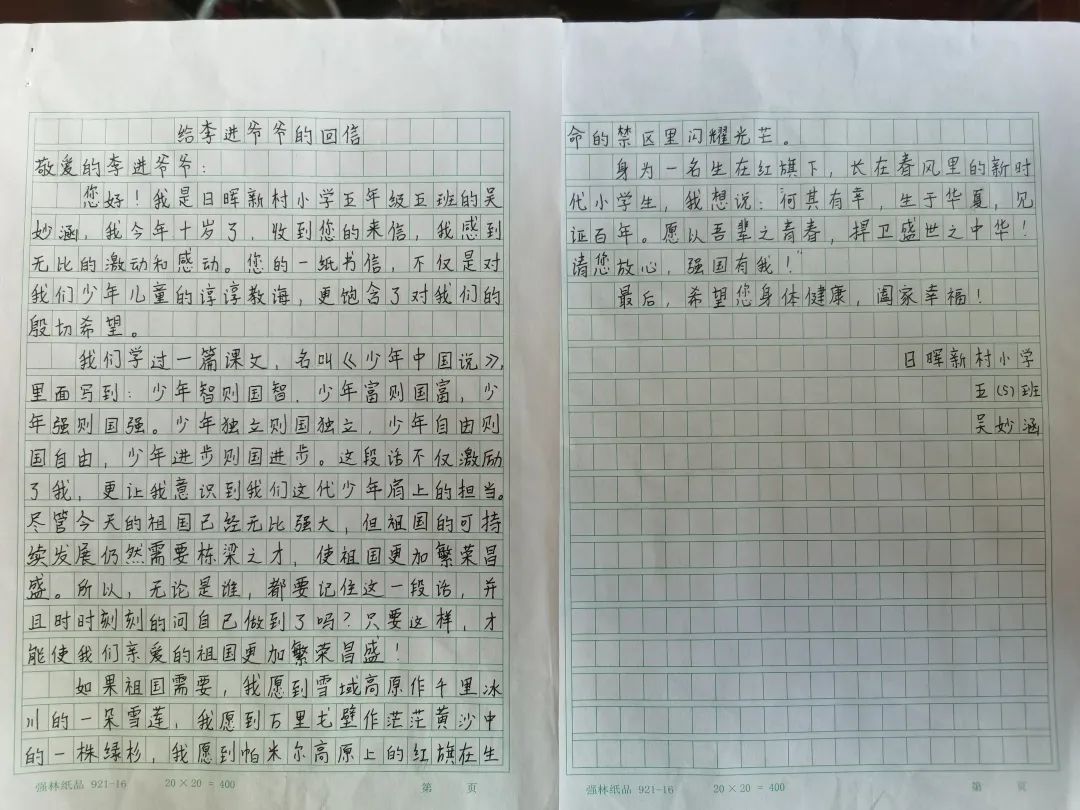 给李进爷爷的回信
敬爱的李进爷爷：
您好！我是日晖新村小学五年级五班的吴
妙涵，我今年十岁了，收到您的来信，我感到
无比的激动和感动。您的一纸书信，不仅是对
我们少年儿童的谆谆教诲，更饱含了对我们的
殷切希望。
我们学过一篇课文，名叫《少年中国说》，
里面写到：少年智则国智，少年富则国富，少
年强则国强。少年独立则国独立，少年自由则
国自由，少年进步则国进步。这段话不仅激励
了我，更让我意识到我们这代少年肩上的担当。
尽管今天的祖国已经无比强大，但祖国的可持
续发展仍然需要栋梁之才，使祖国更加繁荣昌
盛。所以，无论是谁，都要记住这一段话，并
且时时刻刻的问自己做到了吗？只要这样，才
能使我们亲爱的祖国更加繁荣昌盛！
如果祖国需要，我愿到雪域高原作千里冰
川的一朵雪莲，我愿到万里戈壁作茫茫黄沙中
的一株绿杉，我愿到帕米尔高原上的红旗在生
强林纸品 921-16 20×20=400 第 页
命的禁区里闪耀光芒。
身为一名生在红旗下，长在春风里的新时
代小学生，我想说：“何其有幸，生于华夏，见
证百年。愿以吾辈之青春，捍卫盛世之中华！
请您放心，强国有我！”
最后，希望您身体健康，阖家幸福！
日晖新村小学
五（5）班
吴妙涵
强林纸品 921-16 20×20=400 第 页